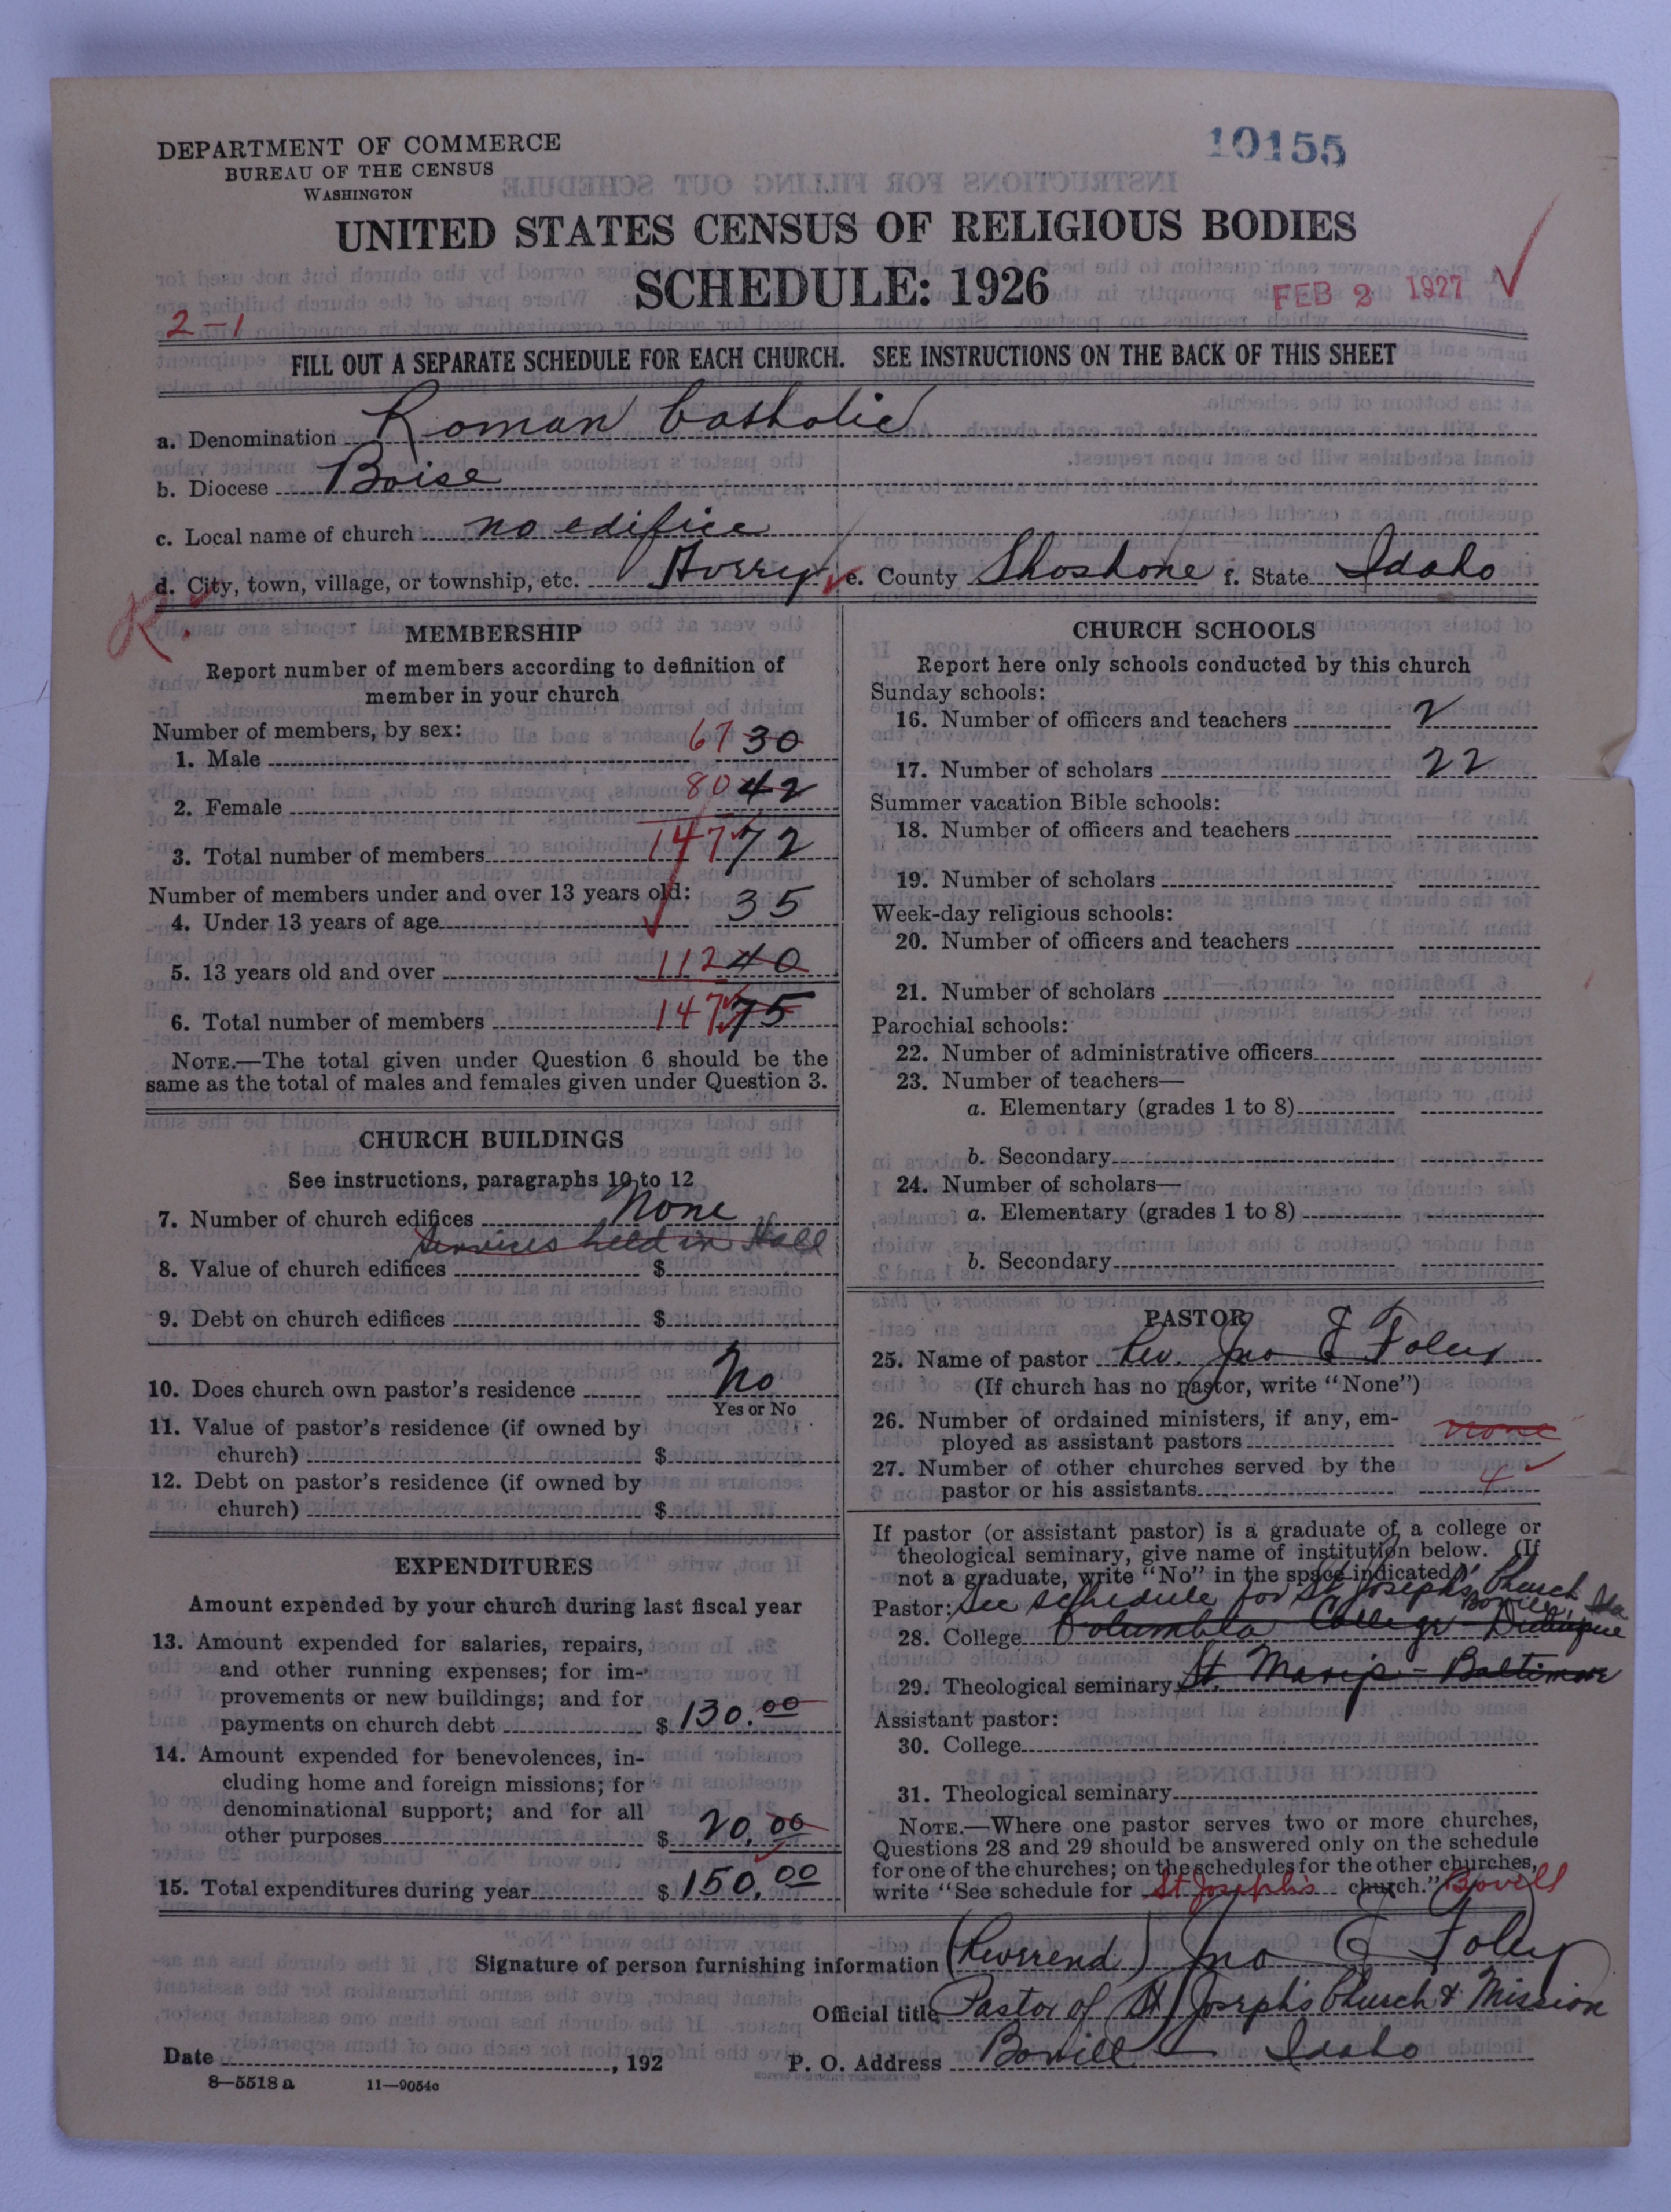 DEPARTMENT OF COMMERCE
BUREAU OF THE CENSUS
WASHINGTON
10155
UNITED STATES CENSUS OF RELIGIOUS BODIES
SCHEDULE: 1926
FEB 2 1927
2-1
FILL OUT A SEPARATE SCHEDULE FOR EACH CHURCH. SEE INSTRUCTIONS ON THE BACK OF THIS SHEET
a. Denomination Roman Catholic
b. Diocese Boise
c. Local name of church no edifice
d. City, town, village, or township, etc. Avery e. County Shoshone f. State Idaho
MEMBERSHIP
Report number of members according to definition of
member in your church
Number of members, by sex:
1. Male 67 30
2. Female 80 42
3. Total number of members 147 72
Number of members under and over 13 years old:
4. Under 13 years of age 35
5. 13 years old and over 112 40
6. Total number of members 147 75
NOTE.—The total given under Question 6 should be the
same as the total of males and females given under Question 3.
CHURCH BUILDINGS
See instructions, paragraphs 10 to 12
7. Number of church edifices None
Services held in Hall
8. Value of church edifices $
9. Debt on church edifices $
10. Does church own pastor's residence No
Yes or No
11. Value of pastor's residence (if owned by
church) $
12. Debt on pastor's residence (if owned by
church) $
EXPENDITURES
Amount expended by your church during last fiscal year
13. Amount expended for salaries, repairs,
and other running expenses; for im-
provements or new buildings; and for
payments on church debt $ 130.00
14. Amount expended for benevolences, in-
cluding home and foreign missions; for
denominational support; and for all
other purposes $ 20.00
15. Total expenditures during year $ 150.00
CHURCH SCHOOLS
Report here only schools conducted by this church
Sunday schools:
16. Number of officers and teachers 2
17. Number of scholars 22
Summer vacation Bible schools:
18. Number of officers and teachers
19. Number of scholars
Week-day religious schools:
20. Number of officers and teachers
21. Number of scholars
Parochial schools:
22. Number of administrative officers
23. Number of teachers—
a. Elementary (grades 1 to 8)
b. Secondary
24. Number of scholars—
a. Elementary (grades 1 to 8)
b. Secondary
PASTOR
25. Name of pastor Rev. Jno E Foley
(If church has no pastor, write "None")
26. Number of ordained ministers, if any, em-
ployed as assistant pastors none
27. Number of other churches served by the
pastor or his assistants 4
If pastor (or assistant pastor) is a graduate of a college or
theological seminary, give name of institution below. (If
not a graduate, write "No" in the space indicated)
Pastor: See schedule for St Joseph's Church
Bovill, Ida
28. College Columbia College - Dubuque
29. Theological seminary St. Mary's - Baltimore
Assistant pastor:
30. College
31. Theological seminary
NOTE.—Where one pastor serves two or more churches,
Questions 28 and 29 should be answered only on the schedule
for one of the churches; on the schedules for the other churches,
write "See schedule for St Joseph's church." Bovill
Signature of person furnishing information (Reverend) Jno E Foley
Official title Pastor of St Joseph's Church & Mission
Date , 192 P. O. Address Bovill Idaho
8—5518 a 11—9054c